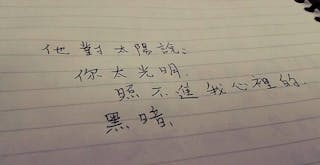 他對太陽說:
你太光明.
照不進我心裡的.
黑暗.